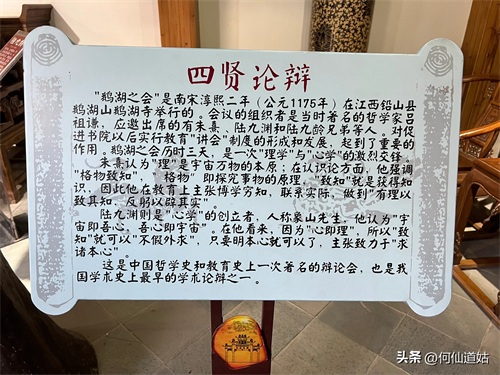 四贤论辩
"鹅湖之会"是南宋淳熙二年（公元1175年）在江西铅山县
鹅湖山鹅湖寺举行的。会议的组织者是当时著名的哲学家吕
祖谦，应邀出席的有朱熹、陆九渊和陆九龄兄弟等人。对促
进书院以后实行教育"讲会"制度的形成和发展，起到了重要的
作用。鹅湖之会历时三天，是一次"理学"与"心学"的激烈交锋。
朱熹认为"理"是宇宙万物的本原；在认识论方面，他强调
"格物致知"，"格物"即探究事物的原理，"致知"就是获得知
识，因此他在教育上主张博学穷知，联系实际，做到"有理以
致其知，反躬以辟其实"。
陆九渊则是"心学"的创立者，人称象山先生。他认为"宇
宙即吾心，吾心即宇宙"。在他看来，因为"心即理"，所以"致
知"就可以"不假外求"，只要明本心就可以了，主张致力于"求
诸本心"。
这是中国哲学史和教育史上一次著名的辩论会，也是我
国学术史上最早的学术论辩之一。
头条 @何仙道姑